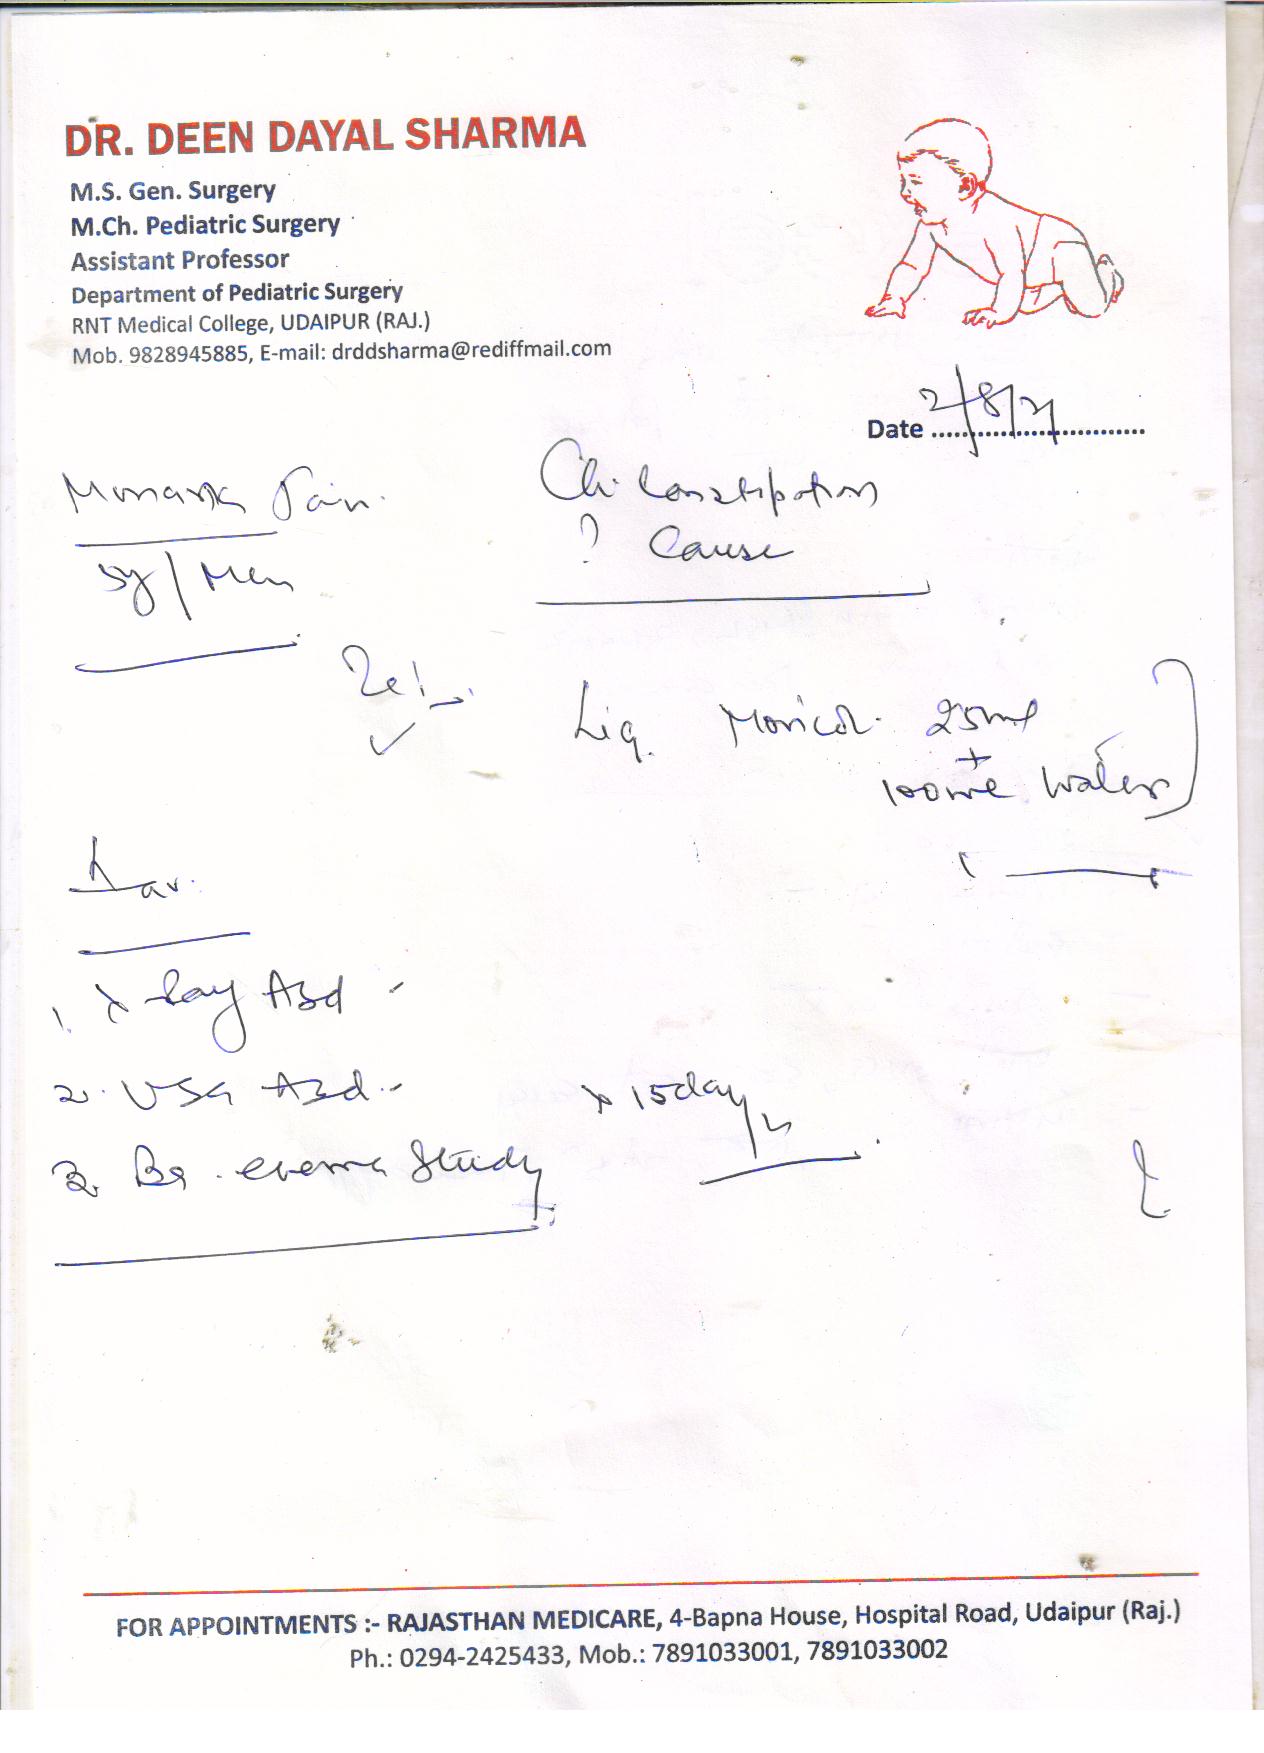 DR. DEEN DAYAL SHARMA
M.S. Gen. Surgery
M.Ch. Pediatric Surgery
Assistant Professor
Department of Pediatric Surgery
RNT Medical College, UDAIPUR (RAJ.)
Mob. 9828945885, E-mail: drddsharma@rediffmail.com
Date 2/8/21
Ch. Constipation
? Cause
5y/
Liq. 25ml
+
100ml water
1. X-Ray Abd
2. USG Abd
3. Ba. enema Study
x 15 days
FOR APPOINTMENTS :- RAJASTHAN MEDICARE, 4-Bapna House, Hospital Road, Udaipur (Raj.)
Ph.: 0294-2425433, Mob.: 7891033001, 7891033002